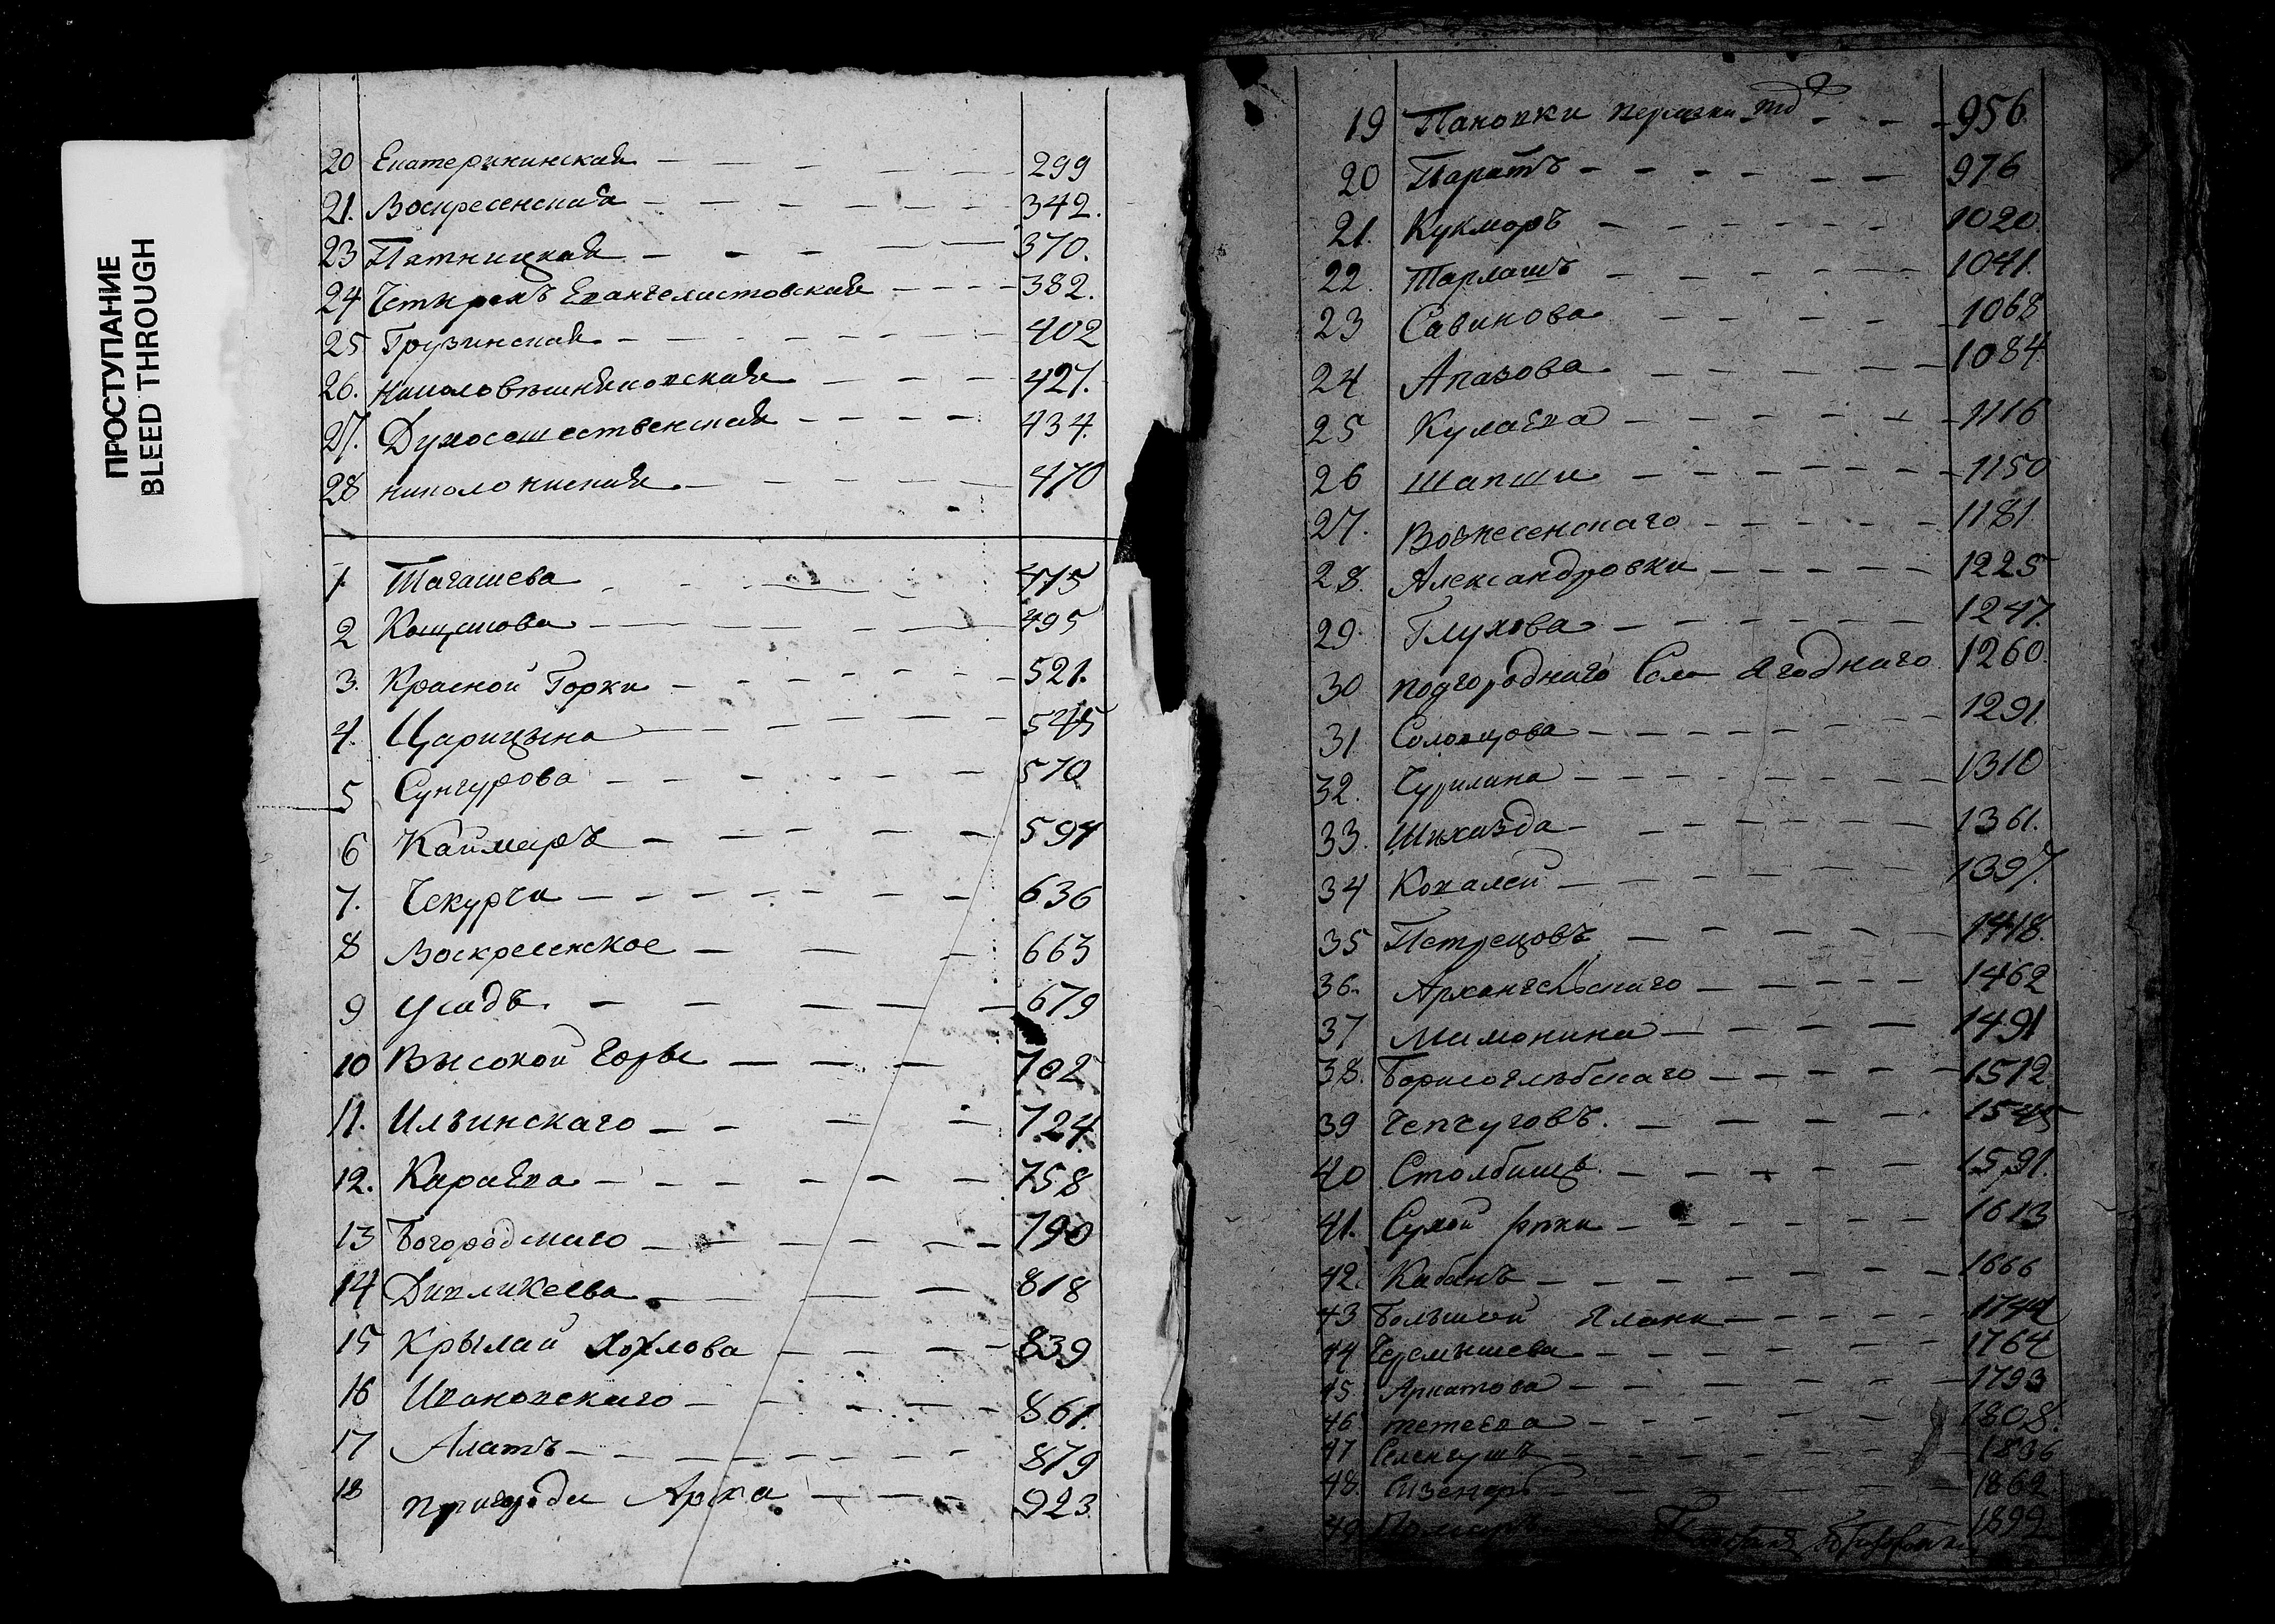 ПРОСТУПАНИЕ
BLEED THROUGH
20 Екатерининская 299
21. Воскресенская 342.
23 Пятницкая 370.
24 Четырехъ Евангелистовская 382.
25 Грузинская 402
26. Николовешняковская 427.
27. Духосошественская 434.
28 Николониская 470
1 Тагашева 475
2 Кощакова 495
3. Красной Горки 521.
4. Царицына 545
5 Сунгурова 570
6 Каймаръ 594
7. Чекурчи 636
8 Воскресенское 663
9 Усадъ. 679
10 Высокой Горы 702
11. Ильинскаго 724
12. Караева 758
13 Богородскаго 790
14 Дивликеева 818
15 Крылай Хохлова 839
16 Ивановскаго 861.
17 Алатъ 879
18 Пригорода Арска 923
19 Пановки 956.
20 Паратъ 976
21. Кукморъ 1020.
22. Тарлашъ 1041.
23 Савинова 1068
24 Апазова 1084
25 Кулаева 1116
26 Шапши 1150
27. Вознесенскаго 1181
28. Александровки 1225
29. Глухова 1247.
30 Подгороднаго Села Ягоднаго 1260.
31 Соловцова 1291.
32. Чурилина 1310
33. Шихазда 1361.
34 Ковалей 1397.
35 Петрецовъ 1418.
36. Архангельскаго 1462
37 Мамонина 1491
38. Борисоглебскаго 1512
39 Чепчуговъ. 1545
40 Столбищъ 1591.
41. Сухой рѣки 1613
42. Кабанъ 1666
43 Большой Елани 1744
44 Черемышева 1764
45. Аркатова 1793
46 Тетеева 1808.
47 Селенгушъ 1836
48. 1862
49 1899